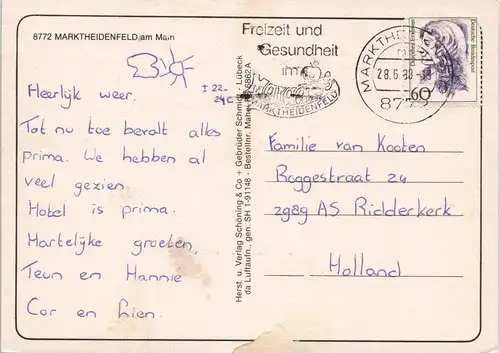 8772 MARKTHEIDENFELD am Main
Heerlijk weer. ± 22-
24c
Tot nu toe bevalt alles
prima. We hebben al
veel gezien.
Hotel is prima.
Hartelijke groeten,
Teun en Hannie
Cor en Lien.
Herst. u. Verlag Schöning & Co + Gebrüder Schmidt, Lübeck
da Luftaufn., gen. SH I-91148 - Bestellnr. Mahei
Freizeit und
Gesundheit
im
MARKTHEIDENFELD
MARKTHEIDENFELD
28.6.88-18
8772
Deutsche Bundespost
60
Familie van Kooten
Roggestraat 24
2989 AS Ridderkerk
Holland